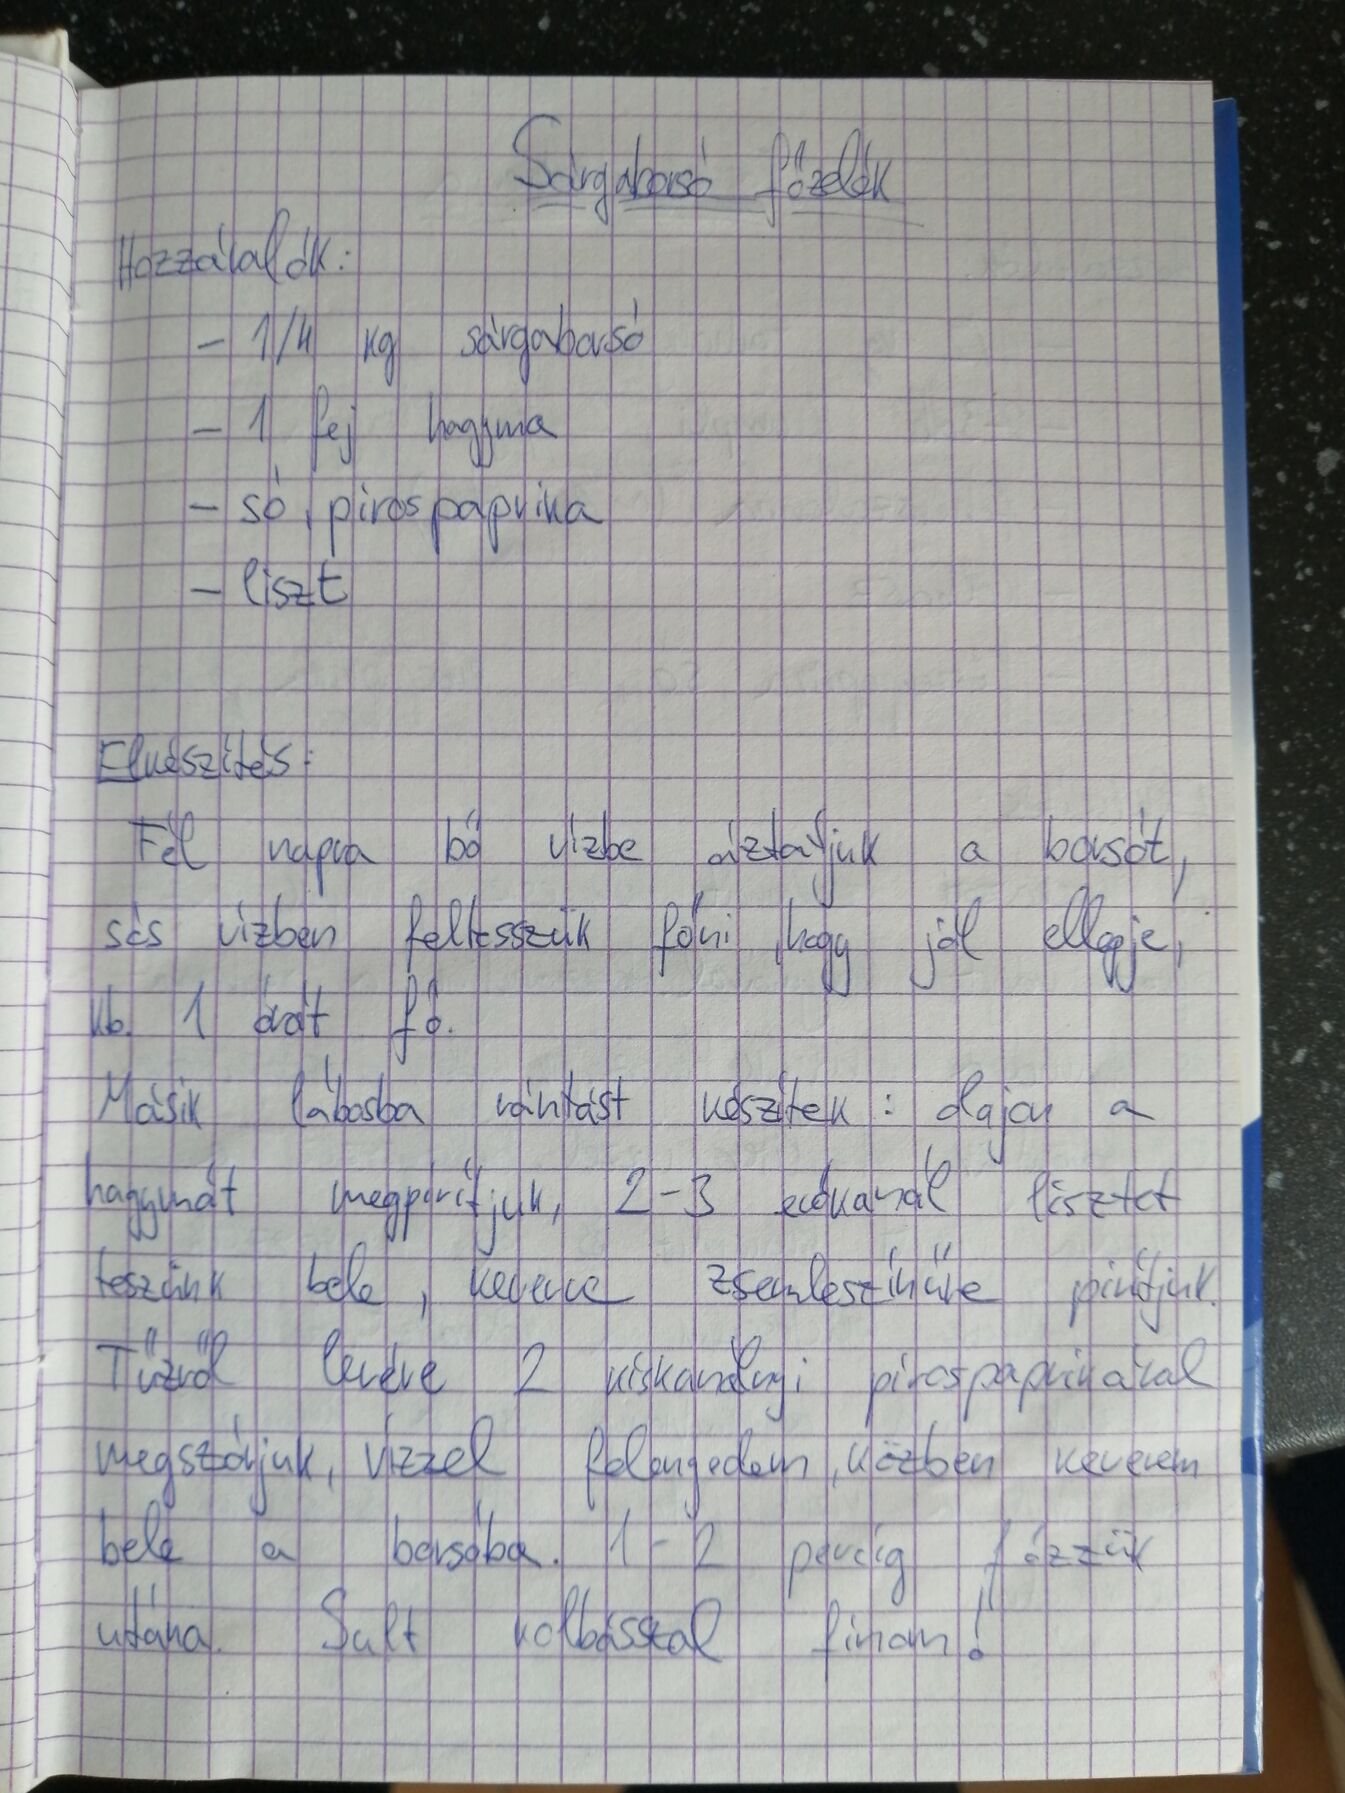 Sárgaborsó főzelék
Hozzávalók:
- 1/4 kg sárgaborsó
- 1 fej hagyma
- só, pirospaprika
- liszt
Elkészítés:
Fél napra bő vízbe áztatjuk a borsót,
sós vízben feltesszük főni, hogy jól ellepje,
kb. 1 órát fő.
Másik lábosba rántást készítek: olajon a
hagymát megpirítjuk, 2-3 evőkanál lisztet
teszünk bele, keverve zsemleszínűre pirítjuk.
Tűzről levéve 2 kiskanálnyi pirospaprikával
megszórjuk, vízzel felengedem, közben keverem
bele a borsóba. 1-2 percig főzzük
utána. Sült kolbásszal finom!